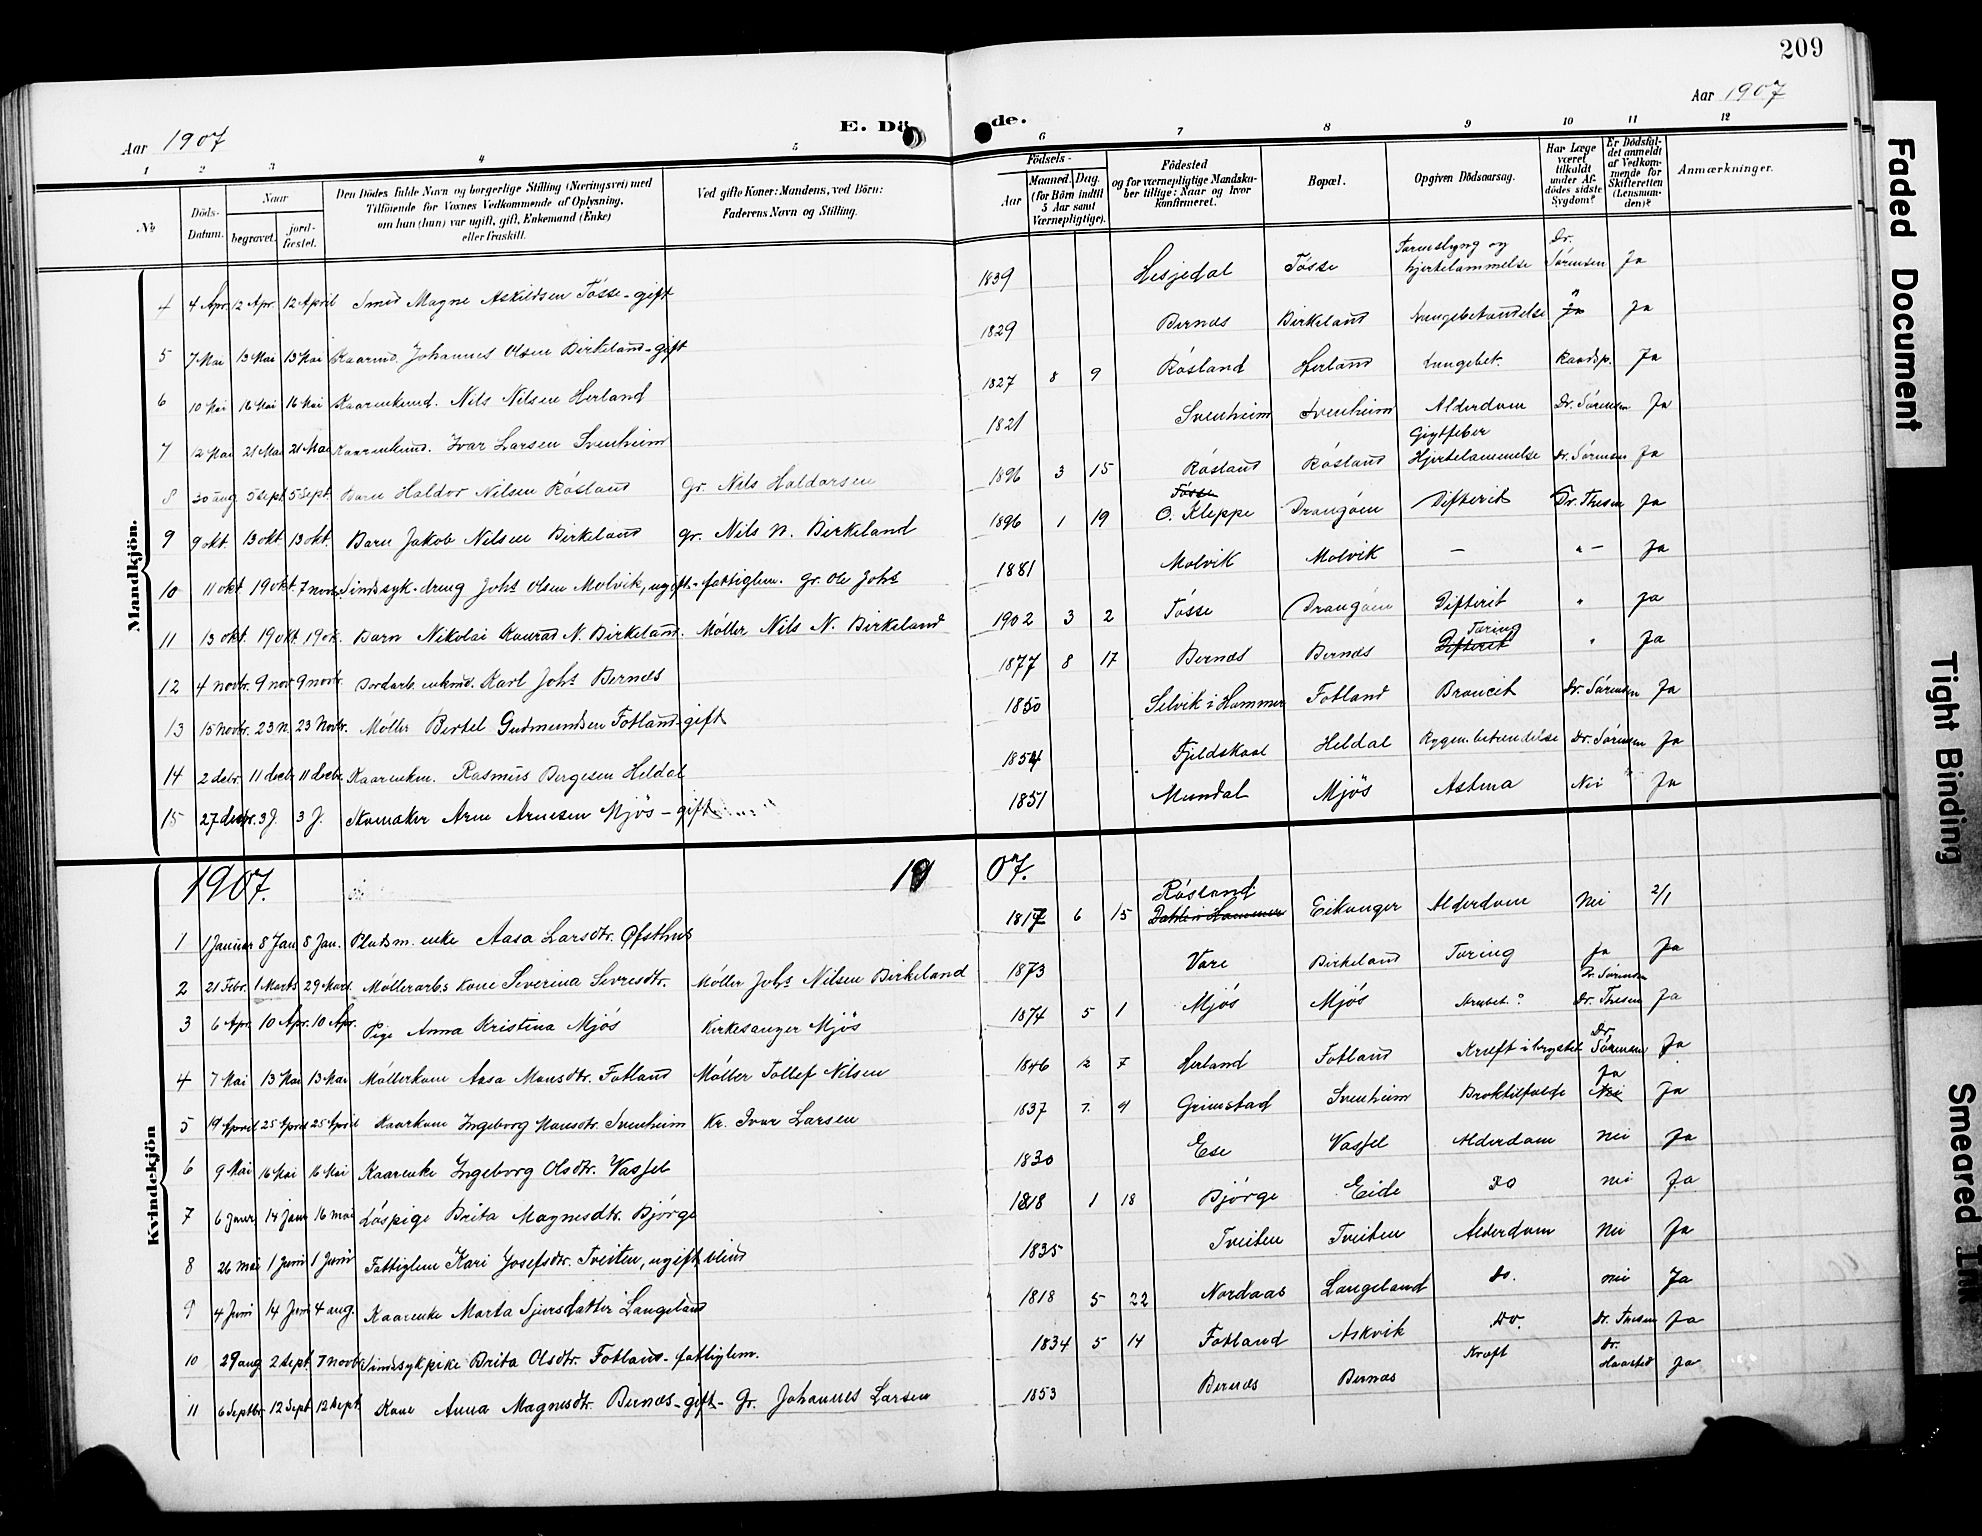 209
Aar 1907
E. Dö de.
Aar 1907
1 2 3 4 5 6 7 8 9 10 11 12
No
Döds-Datum.
Naar
begravet.
jord-fæstet.
Den Dödes fulde Navn og borgerlige Stilling (Næringsvei) med
Tilföiende for Voxnes Vedkommende af Oplysning,
om han (hun) var ugift, gift, Enkemand (Enke)
eller fraskilt.
Ved gifte Koner: Mandens, ved Börn:
Faderens Navn og Stilling.
Födsels-
Aar
Maaned. Dag.
(for Börn indtil
5 Aar samt
Værnepligtige).
Födested
og for værnepligtige Mandska-
ber tillige: Naar og hvor
konfirmeret.
Bopæl.
Opgiven Dödsaarsag.
Har Læge
været
tilkaldt
under Af-
dödes sidste
Sygdom?
Er Dödsfal-
det anmeldt
af Vedkom-
mende for
Skifteretten
(Lensman-
den)?
Anmærkninger.
Mandkjön.
4 4 Apr. 12 Apr. 12 April Smed Magne Askildsen Tósse - gift 1839 Hesjedal Tósse Tarmslyng og hjertelammelse Dr. Sørensen Ja
5 7 Mai 13 Mai 13 Mai Kaarmd. Johannes Olsen Birkeland - gift 1829 Bernæs Birkeland Lungebetændelse " Ja
6 10 Mai 16 Mai 16 Mai Kaarenkemd. Nils Nilsen Herland 1827 8 9 Røsland Herland Lungebet. Raadsp. Ja
7 12 Mai 21 Mai 21 Mai Kaarenkemd. Ivar Larsen Svenheim 1821 Svenheim Svenheim Alderdom Dr. Sørensen Ja
8 30 aug 5 Sept 5 Sept. Barn Haldor Nilsen Røsland Gr. Nils Haldorsen 1896 3 15 Røsland Røsland Gigtfeber Hjertelammelse Dr. Sørensen Ja
9 9 okt. 13 okt. 13 okt. Barn Jakob Nilsen Birkeland gr. Nils N. Birkeland 1896 1 19 Tósse O. Kleppe Drangóen Difterit Dr. Thesen Ja
10 11 okt 19 okt. 7 novb. Sindssyk dreng Johs Olsen Molvik, ugift. - fattiglem. gr. Ole Johs 1881 Molvik Molvik — " — Ja
11 13 okt. 19 okt. 19 ok. Barn Nikolai Konrad N. Birkeland. Møller Nils N. Birkeland 1902 3 2 Tósse Drangóen Difterit " Ja
12 4 novbr. 9 nov 9 novbr. Jordarb. enkmd. Karl Johs Bernæs 1877 8 17 Bernæs Bernæs Difterit Tæring " Ja
13 15 Novbr. 23 N. 23 Novbr. Møller Bertel Gudmundsen Fotland - gift 1850 Selvik i Hammer Fotland Broncit Dr. Sørensen Ja
14 2 debr. 11 decbr 11 decbr. Kaarenkem. Rasmus Børgesen Heldal 1854 Fjeldskaal Heldal Rygm. betændelse Dr. Sørensen Ja
15 27 decbr. 3 J. 3 J. Skomaker Arne Arnesen Mjös - gift 1851 Mundal Mjös Astma Nei Ja
Kvindekjön
1907. 1907.
1 1 Januar 8 Jan 8 Jan. Pladsm. enke Aasa Larsdtr. Øfsthus 1817 6 15 Røsland Dahle i Hammer Eikanger Alderdom Nei 2/1
2 21 Febr. 1 Marts 29 Mars. Møllerarb.s Kone Severina Sivresdtr. Møller Johs Nilsen Birkeland 1873 Vare Birkeland Tæring Ja Dr. Sørensen Ja
3 6 Apr. 10 Apr. 10 Apr. Pige Anna Kristina Mjós Kirkesanger Mjös 1874 5 1 Mjós Mjós Dr. Thesen Ja
4 7 Mai 13 Mai 13 Mai Møllerkone Aasa Monsdtr. Fotland Møller Tollef Nilsen 1846 12 7 Herland Fotland Kræft i brystet Dr. Sørensen Ja
5 19 April 25 April 25 April Kaarkone Ingeborg Hansdtr. Svenheim Kr. Ivar Larsen 1837 7. 4 Grimstad Svenheim Broktilfælde Ja Nei Ja
6 9 Mai 16 Mai 16 Mai Kaarenke Ingeborg Olsdtr. Vassel 1830 Ese Vassel Alderdom nei Ja
7 6 Janr 14 Janr 16 mai Lóspige Brita Magnesdtr. Bjórge 1818 1 18 Bjórge Eide Do nei Ja
8 26 mai 1 Juni 1 Juni Fattiglem Kari Josefsdtr. Tveiten, ugift blind 1835 Tveiten Tveiten Alderdom Nei Ja
9 4 Juni 14 Juni 4 aug. Kaarenke Marta Sjursdatter Langeland 1818 5 22 Nordaas Langeland Do. nei Ja
10 29 aug 2 Sept 7 novb. Sindssykpike Brita Olsdtr. Fotland - fattiglem. 1834 5 14 Fotland Askvik Do. Dr. Thesen Ja
11 6 Septbr. 12 Sept 12 Sept. Kone Anna Magnesdtr. Bernæs - gift - Gr. Johannes Larsen 1853 Bernæs Bernæs Kræft Dr. Haarsted Ja
Faded Document
Tight Binding
Smeared Ink